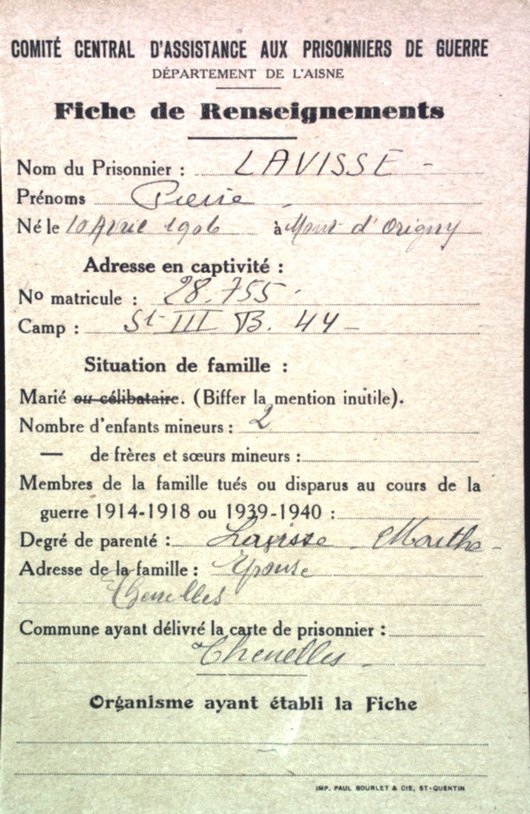 COMITÉ CENTRAL D'ASSISTANCE AUX PRISONNIERS DE GUERRE
DÉPARTEMENT DE L'AISNE
Fiche de Renseignements
Nom du Prisonnier : LAVISSE -
Prénoms Pierre
Né le 10 Avril 1906 à Mont d'Origny
Adresse en captivité :
No matricule : 28.755
Camp : St III B. 44 -
Situation de famille :
Marié ou célibataire. (Biffer la mention inutile).
Nombre d'enfants mineurs : 2
— de frères et sœurs mineurs :
Membres de la famille tués ou disparus au cours de la
guerre 1914-1918 ou 1939-1940 :
Degré de parenté : Lavisse - Marthe -
Adresse de la famille : Epouse
Thenelles
Commune ayant délivré la carte de prisonnier :
Thenelles -
Organisme ayant établi la Fiche
IMP. PAUL BOURLET & CIE, ST-QUENTIN